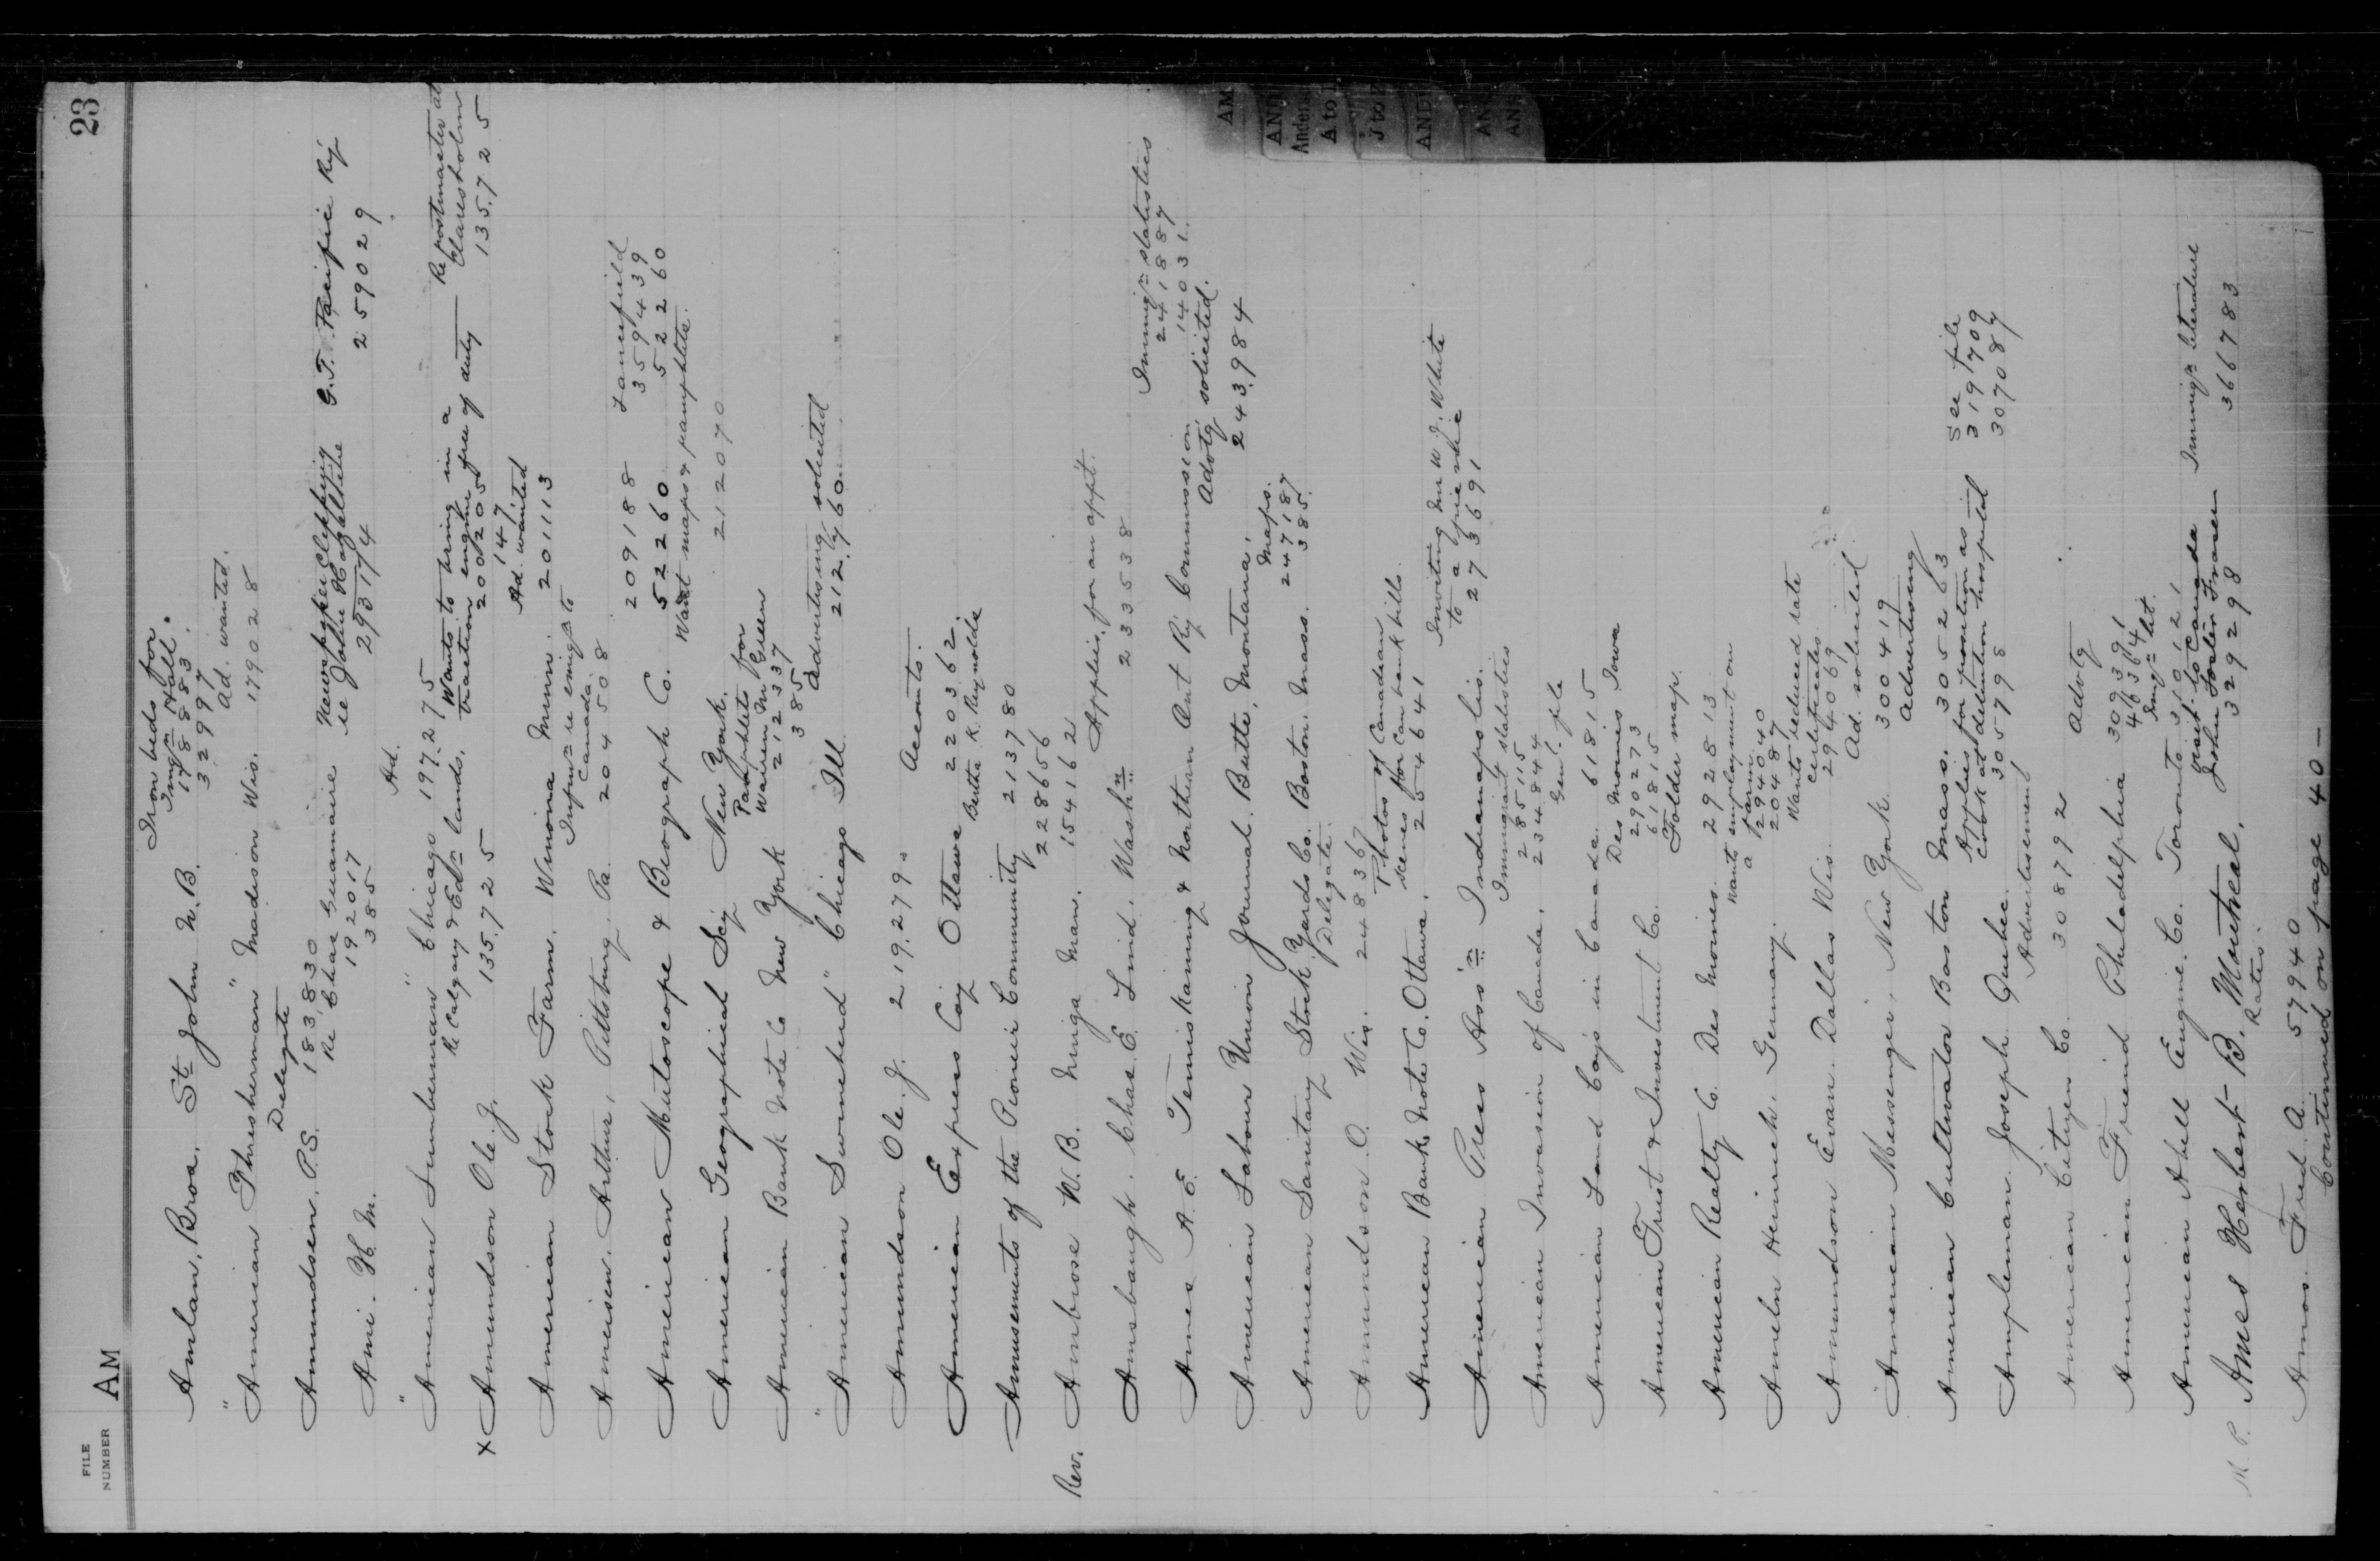 FILE NUMBER AM 23
Iron beds for
Amlan, Bros. St John N.B. Imgn Hall.
178883
32997
Ad. wanted.
"American Thresherman" Madison Wis. 179028
Delegate
Amundsen, P.S. 183,830
Re Chas Guarnaire Newspaper Clipping G.T. Pacific Ry
Ami. H. M. 192017 re John Hazallhe 259029
385 293174
Ad.
"American Lumberman" Chicago 197275
Re Calgary & Edn lands, Wants to bring in a Re postmaster at
x Amundson Ole J. 135725 traction engine free of duty — Claresholm
200205 135725
147
Ad. wanted
American Stock Farm. Winona Minn. 201113
Infmn re emign to
Canada.
Amersen, Arthur, Pittsburg, Pa. 204508
Lanefield
209188 359439
American Mutoscope & Biograph Co. 52260 52260
Want maps & pamphlets.
American Geographical Scy New York. 212070
Pamphlets for
Warren M Green
American Bank Note Co New York 212337
385
Advertising solicited
"American Swineherd" Chicago Ill 212,760
Amundson Ole. J. 219,279.
Accounts.
American Express Coy Ottawa 220362.
Bertha K. Reynolds
Amusements of the Pioneer Community 213780
228656
Rev. Ambrose W.B. Ninga Man. 154162
Applies for an appt.
Amsbaugh. Chas. E. Lind. Washn 233538
Immign statistics
241887
14031
Ames A.E. Temiskaming & Northern Ont Ry Commission
Advtg solicited.
American Labour Union Journal. Butte, Montana, 243984
Maps.
247187
American Sanitary Stock Yards Co. Boston. Mass. 385.
Delegate.
Amundson. O. Wis. 248367
Photos of Canadian
scenes for Can bank bills.
American Bank Note Co. Ottawa. 254641
Inviting Mr W.J. White
to a picnic
American Press Ass'n Indianapolis. 273691
Immigrant statistics
285115
American Invasion of Canada. 234844
Genl. file
American Land Coy's in Canada 61815
Des Moines Iowa
290273
American Trust & Investment Co. 61815
Folder map.
American Realty Co. Des Moines. 292813
Wants employment on
a farm
294040
Ameln Heinrich. Germany. 20487
Wants reduced rate
certificates
Amundson Evan. Dallas Wis. 294069
Ad. solicited
American Messenger, New York. 300419
Advertising
American Cultivator Boston Mass. 305263 See file
Applies for position as 319709
cook at detention hospital 307087
Ampleman. Joseph. Quebec. 305798
Advertisement
American Citizen Co. 308792
Advtg
309391
American Friend Philadelphia 46364
Imgn lit.
American Abell Engine. Co. Toronto 310121
visit to Canada Immign literature
M.P. Ames Herbert B. Montreal. John Foster Fraser 366783
Rates. 329298
Amos. Fred. A. 57940
Continued on page 40 —
AM
AND
Anders
A to
J to
AND
AN
ANS